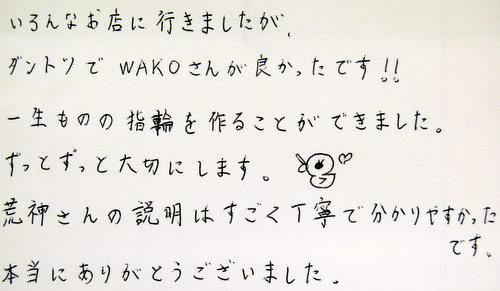 いろんなお店に行きましたが、
ダントツでWAKOさんが良かったです!!
一生ものの指輪を作ることができました。
ずっとずっと大切にします。♡
荒神さんの説明はすごく丁寧で分かりやすかった
です。
本当にありがとうございました。